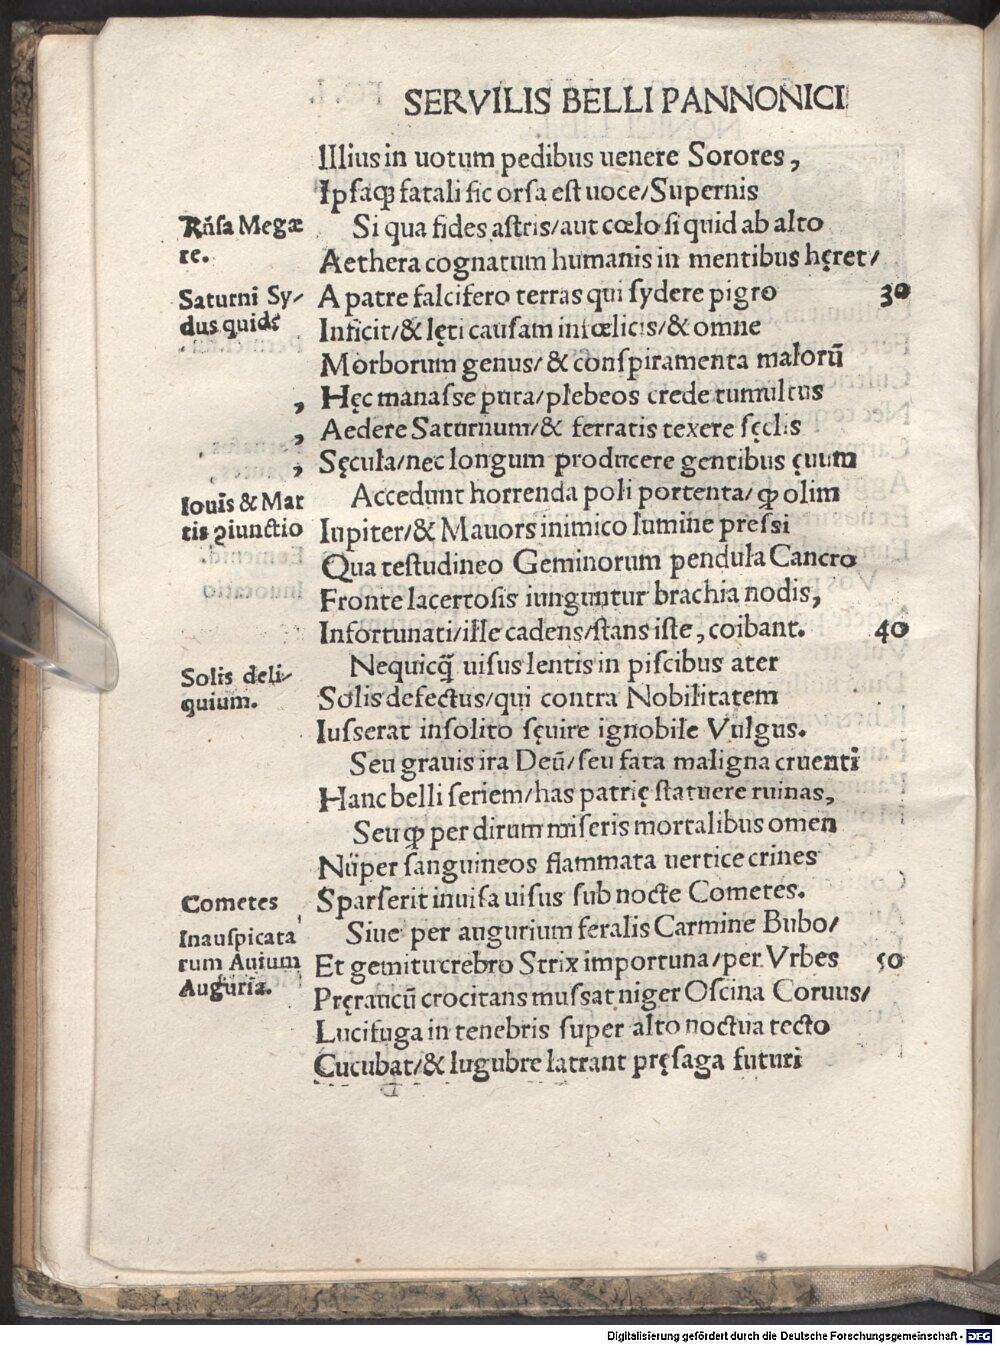 SERVILIS BELLI PANNONICI
Illius in uotum pedibus uenere Sorores,
Ipsaqꝫ fatali sic orsa est uoce/Supernis
Rn̄sa Megæ
re.
Si qua fides astris/aut cœlo si quid ab alto
Aethera cognatum humanis in mentibus hęret/
Saturni Sy/
dus quid⁊
A patre falcifero terras qui sydere pigro 30
Inficit/& lęti causam infœlicis/& omne
Morborum genus/& conspiramenta malorū
, Hęc manasse puta/plebeos crede tumultus
, Aedere Saturnum/& ferratis texere sęclis
, Sęcula/nec longum producere gentibus ęuum
Iouis & Mar
tis ꝯiunctio
Accedunt horrenda poli portenta/ꝙ olim
Iupiter/& Mauors inimico lumine pressi
Qua testudineo Geminorum pendula Cancro
Fronte lacertosis iunguntur brachia nodis,
Infortunati/ille cadens/stans iste, coibant. 40
Solis deli/
quium.
Nequicq̄ uisus lentis in piscibus ater
Solis defectus/qui contra Nobilitatem
Iusserat insolito sęuire ignobile Vulgus.
Seu grauis ira Deū/seu fata maligna cruenti
Hanc belli seriem/has patrię statuere ruinas,
Seu ꝙ per dirum miseris mortalibus omen
Nüper sanguineos flammata uertice crines
Cometes
Sparserit inuisa uisus sub nocte Cometes.
Inauspicata
rum Auium
Auguria.
Siue per augurium feralis Carmine Bubo/
Et gemitu crebro Strix importuna/per Vrbes 50
Pręraucū crocitans mussat niger Oscina Coruus/
Lucifuga in tenebris super alto noctua tecto
Cucubat/& lugubre latrant pręsaga futuri
Digitalisierung gefördert durch die Deutsche Forschungsgemeinschaft - DFG